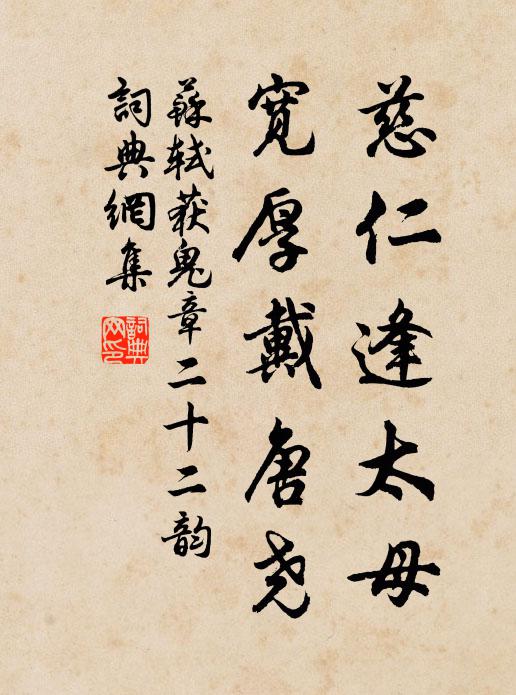 慈仁逢太母
寬厚戴唐堯
蘇軾获鬼章二十二韵
詞典網集
詞典網印